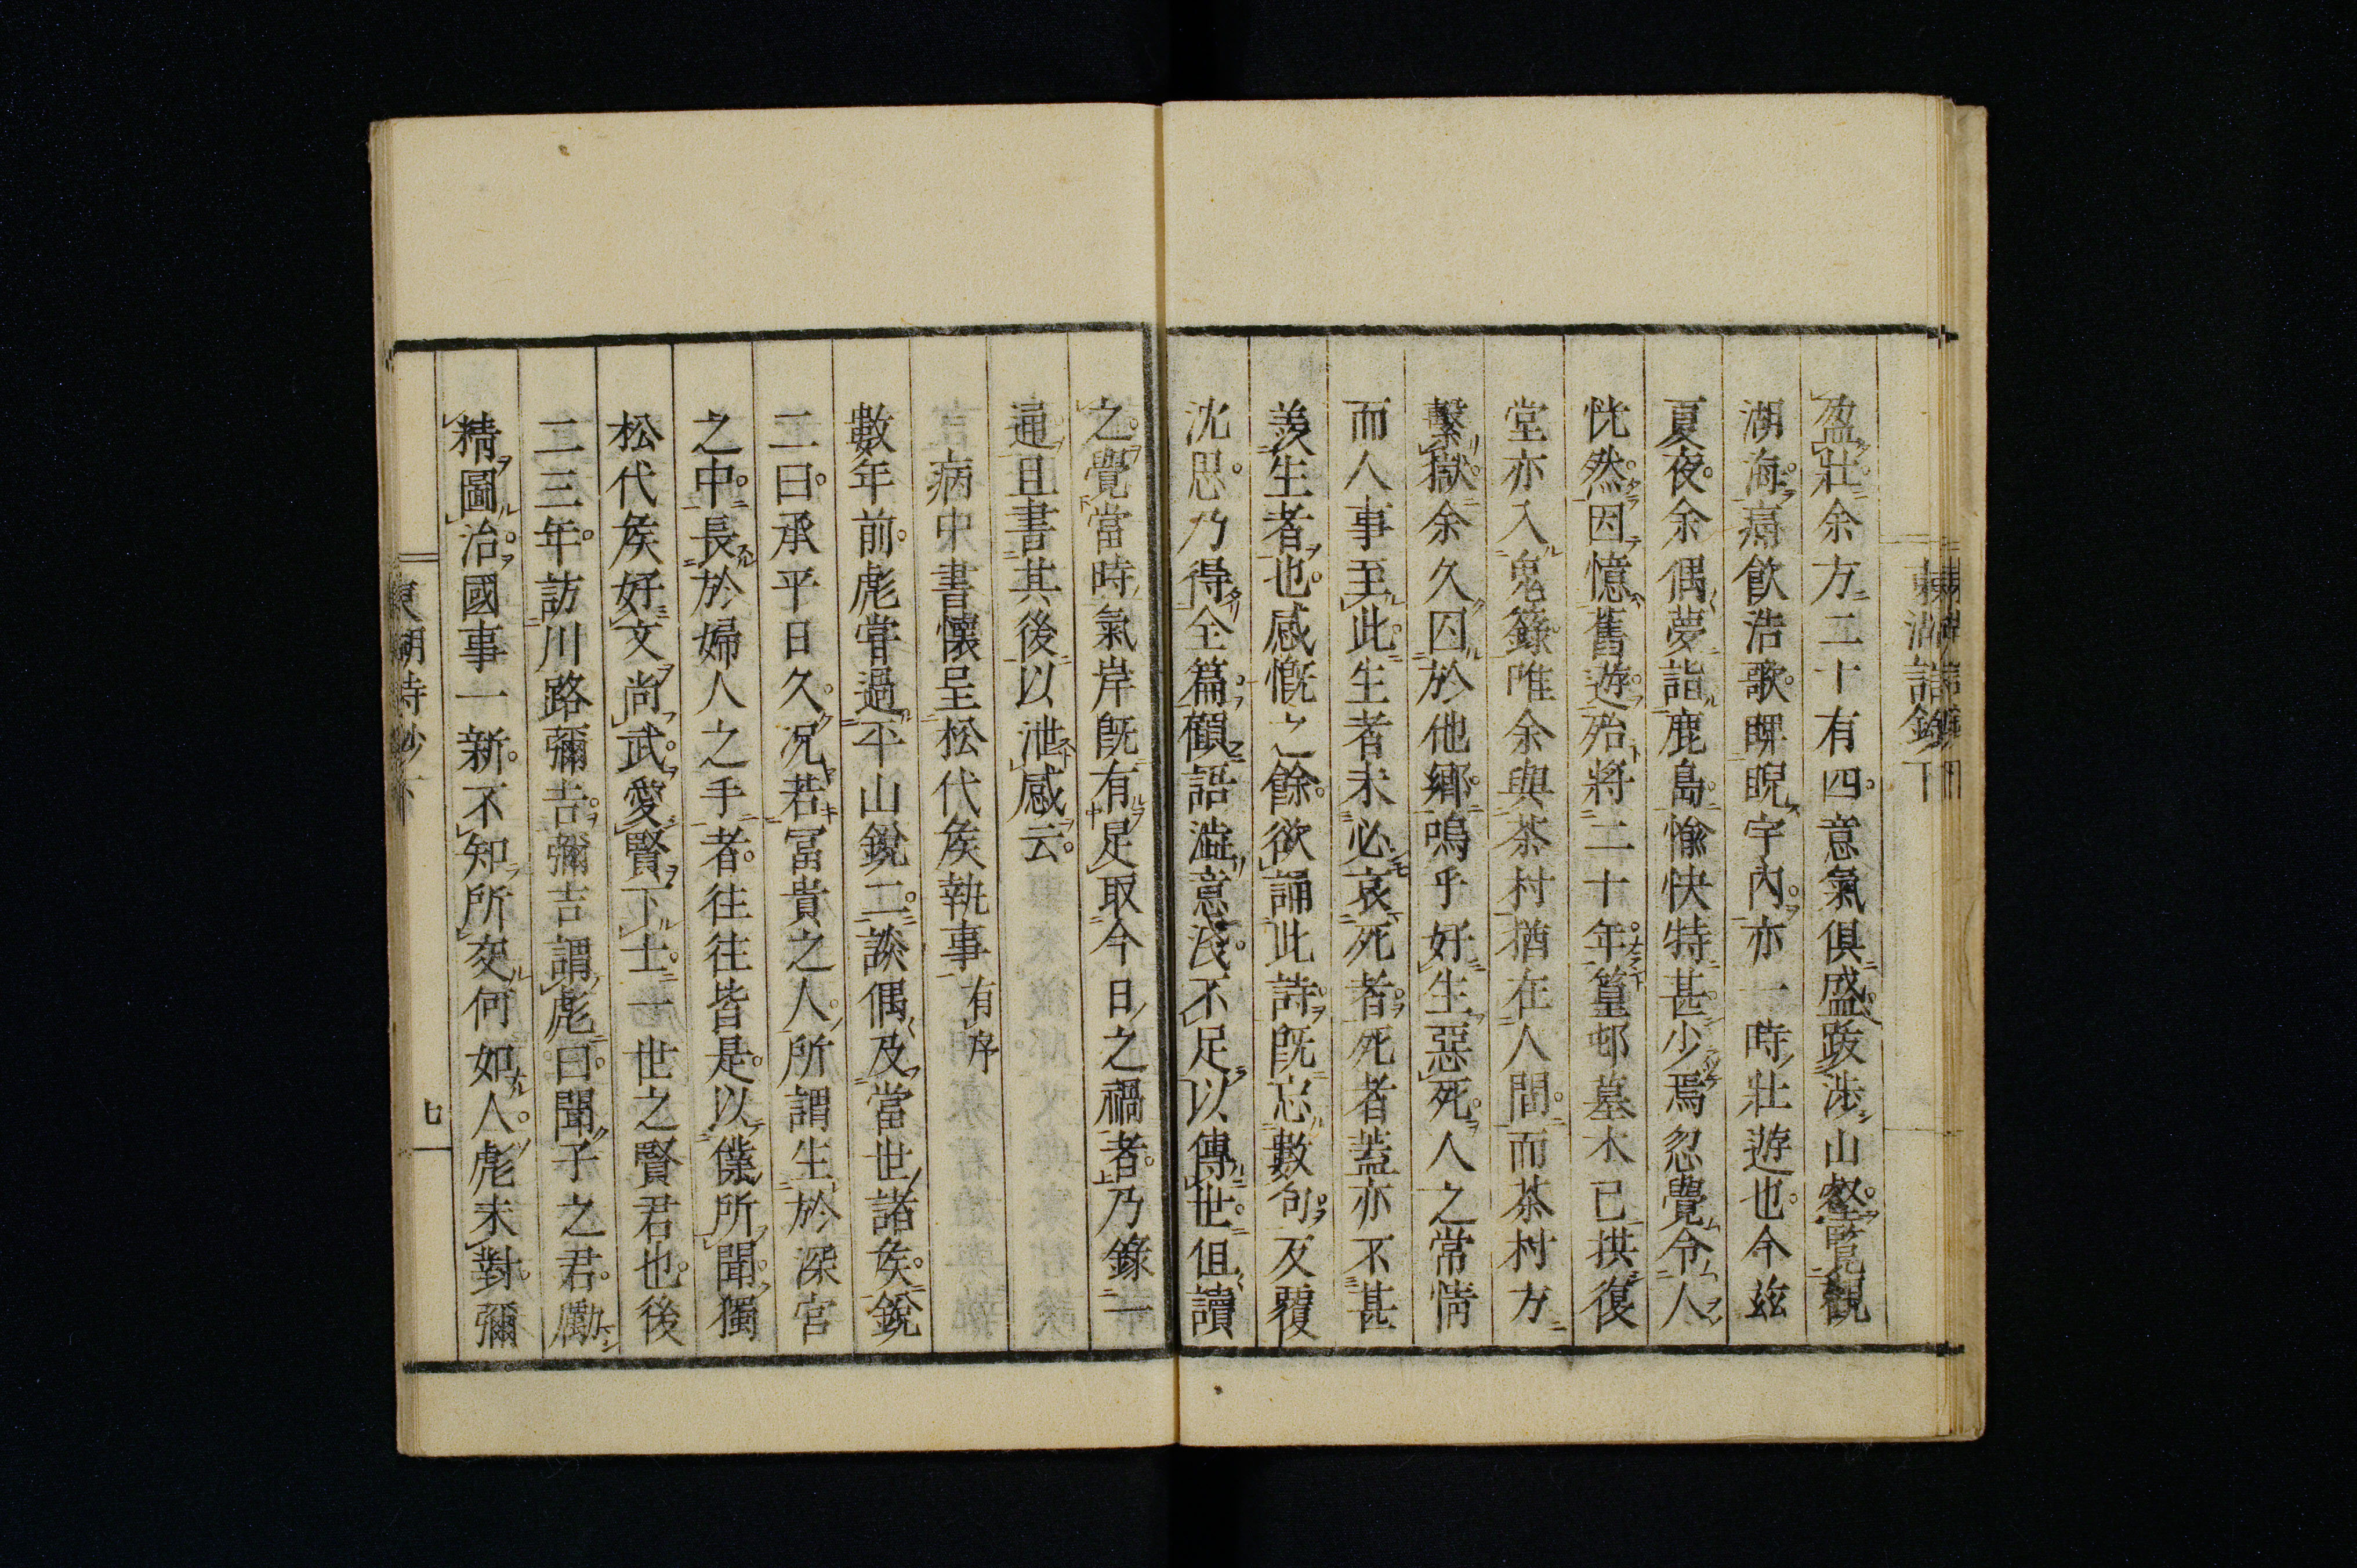 盈壯余方二十有四意氣俱盛跋涉山壑覽觀
湖海痛飮浩歌睥睨宇內亦一時壯遊也今茲
夏夜余偶夢詣鹿島愉快特甚少焉忽覺令人
恍然因憶舊遊殆將二十年篁邨墓木已拱復
堂亦入鬼籙唯余與茶村猶在人間而茶村方
繫獄余久囚於他鄉嗚乎好生惡死人之常情
而人事至此生者未必哀死者死者蓋亦不甚
羨生者也感慨之餘欲誦此詩既忘數句反覆
沈思乃得全篇顧語澁意淺不足以傳世但讀
之覺當時氣岸既有足取今日之禍者乃錄一
通且書其後以泄感云
病中書懷呈松代矦執事有序
數年前彪甞過平山銳二談偶及當世諸矦銳
二曰承平日久况若冨貴之人所謂生於深宮
之中長於婦人之手者往往皆是以僕所聞獨
松代矦好文尚武愛賢下士一世之賢君也後
二三年訪川路彌吉彌吉謂彪曰聞子之君勵
精圖治國事一新不知所交何如人彪未對彌
東湖詩鈔下
七